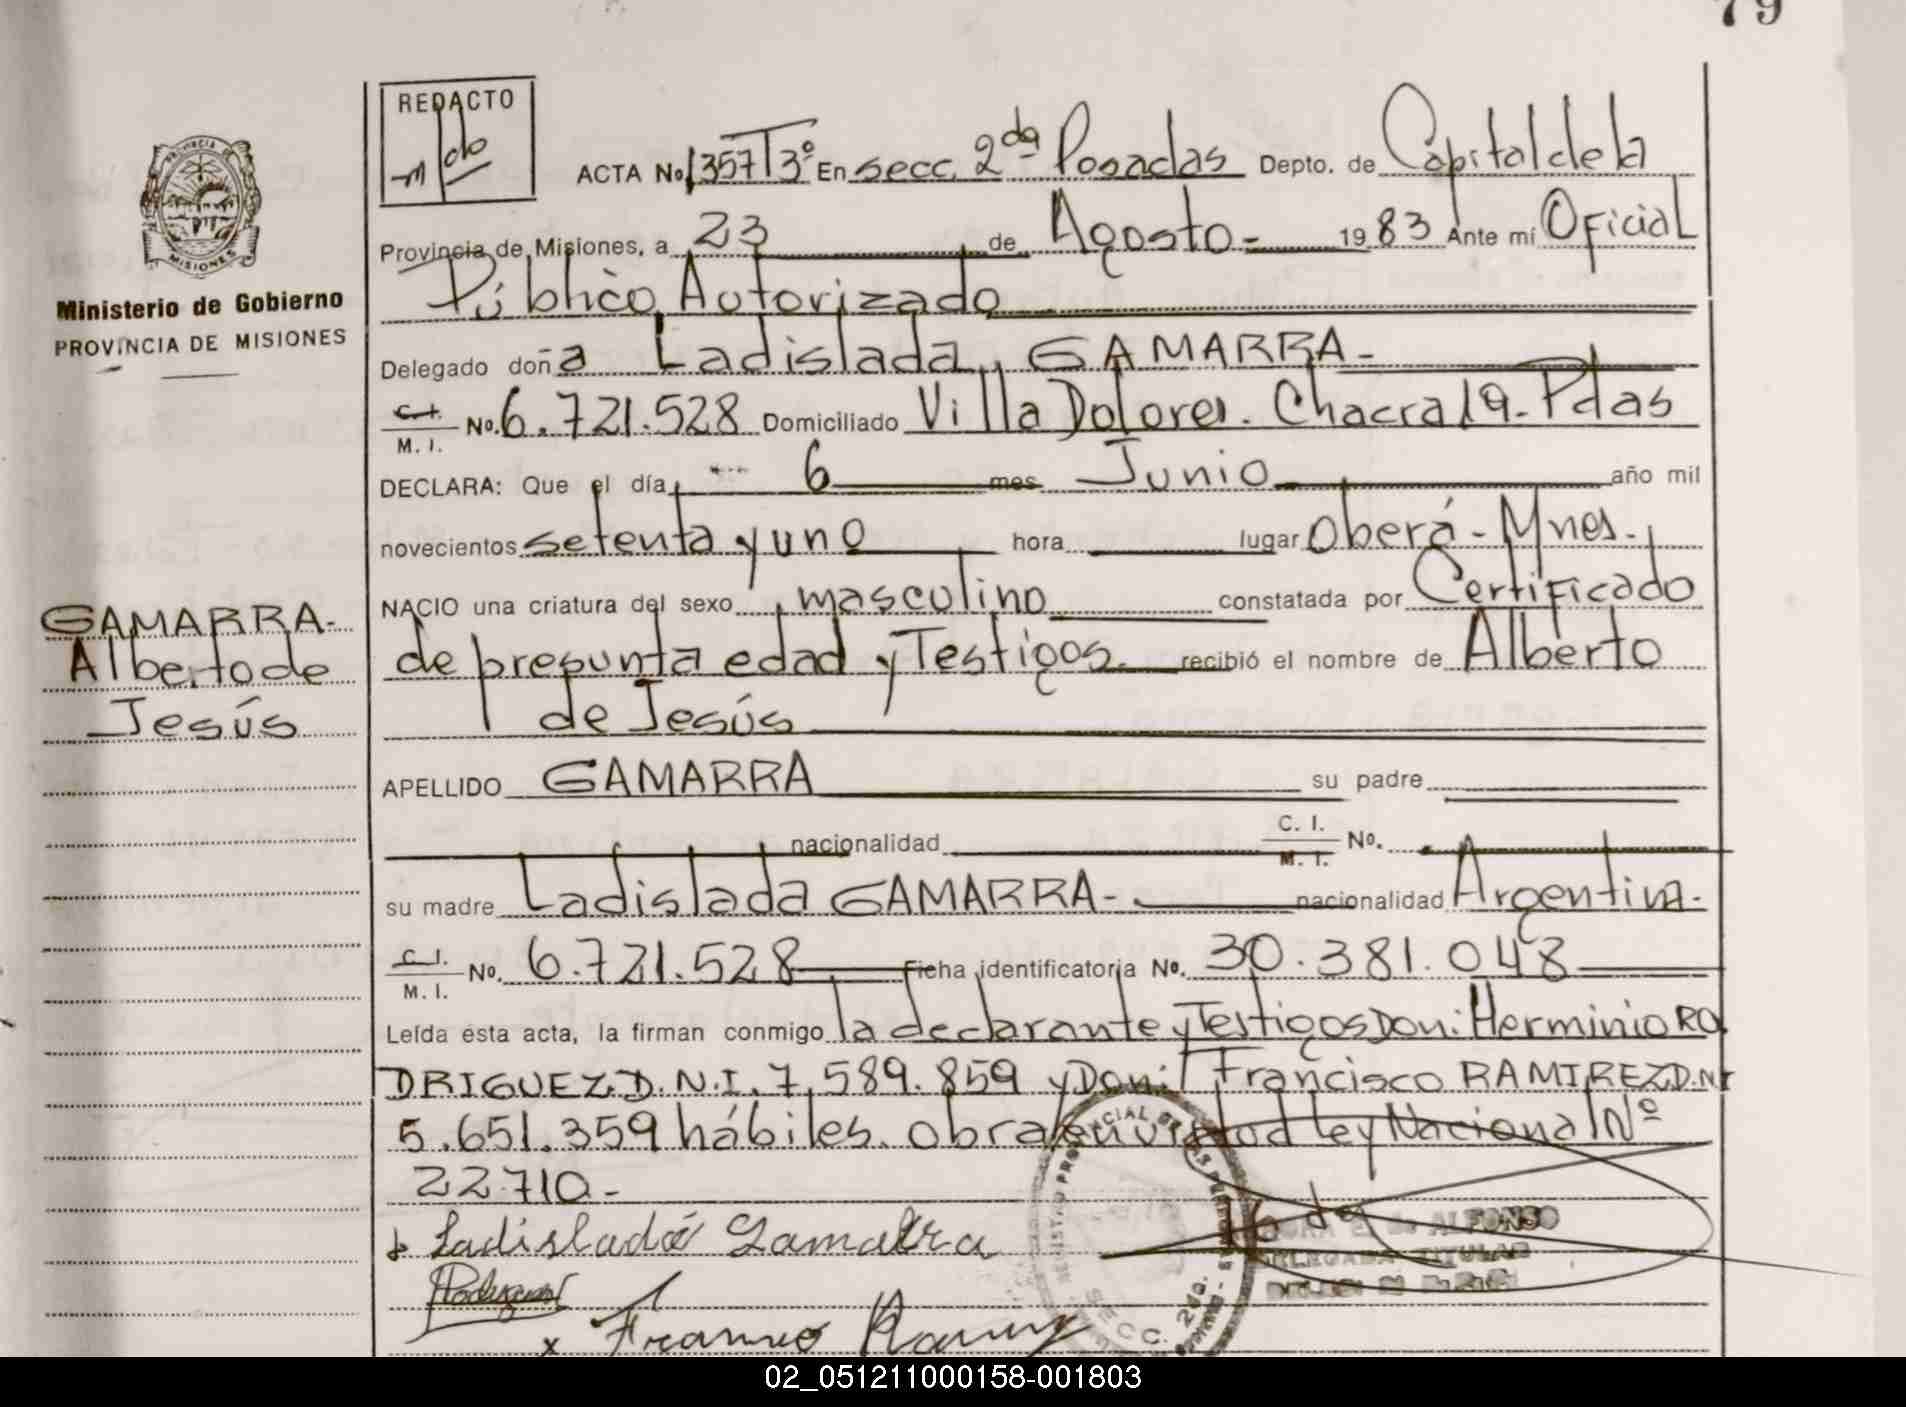 79
REDACTO
ACTA No. 1357 T 3º En secc. 2da Posadas Depto. de Capital de la
Provincia de Misiones, a 23 de Agosto - 19 83 Ante mí Oficial
Público Autorizado
MISIONES
Ministerio de Gobierno
PROVINCIA DE MISIONES
Delegado doña Ladislada GAMARRA -
C. I.
M. I. No. 6.721.528 Domiciliado Villa Dolores. Chacra 19 - Pdas
DECLARA: Que el día 6 mes Junio año mil
novecientos setenta y uno hora lugar Oberá - Mnes.
NACIO una criatura del sexo masculino constatada por Certificado
GAMARRA -
Alberto de
Jesús
de presunta edad y Testigos. recibió el nombre de Alberto
de Jesús
APELLIDO GAMARRA su padre
nacionalidad C. I.
M. I. No.
su madre Ladislada GAMARRA - nacionalidad Argentina -
C. I.
M. I. No. 6.721.528 Ficha identificatoria No. 30.381.048
Leída esta acta, la firman conmigo la declarante y Testigos Don: Herminio RO
DRIGUEZ D.N.I. 7.589.859 y Don: Francisco RAMIREZ D.N.I
5.651.359 hábiles. obra en virtud Ley Nacional Nº
22.710 -
Ladislada Gamarra
ALFONSO
TITULAR
SECC. 2da.
02_051211000158-001803